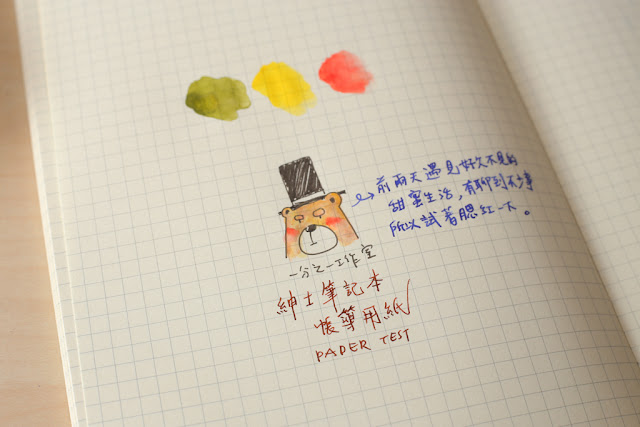 前兩天遇見好久不見的
甜蜜生活,有聊到不少事
所以試著腮紅一下。
一分之一工作室
紳士筆記本
帳簿用紙
PAPER TEST